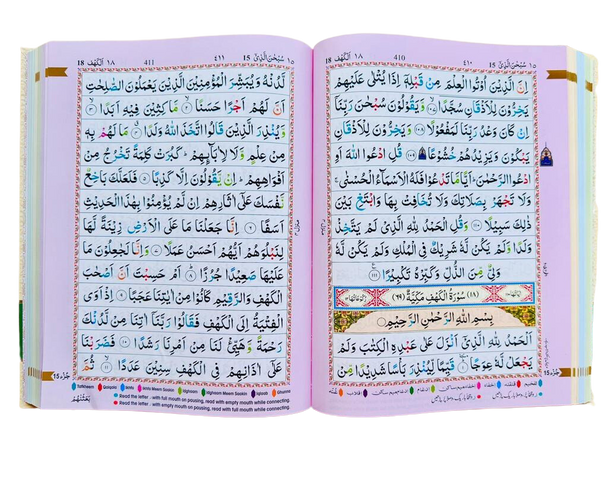 ١٥ سُبْحٰنَ الَّذِیْۤ 15 ٤١٠ 410 ١٨ اَلْكَهْف 18
اِنَّ الَّذِیْنَ اُوْتُوا الْعِلْمَ مِنْ قَبْلِهٖۤ اِذَا یُتْلٰی عَلَیْهِمْ
یَخِرُّوْنَ لِلْاَذْقَانِ سُجَّدًا ۙ﴿۱۰۷﴾ وَّیَقُوْلُوْنَ سُبْحٰنَ رَبِّنَاۤ
اِنْ كَانَ وَعْدُ رَبِّنَا لَمَفْعُوْلًا ﴿۱۰۸﴾ وَیَخِرُّوْنَ لِلْاَذْقَانِ
یَبْكُوْنَ وَیَزِیْدُهُمْ خُشُوْعًا ﴿۱۰۹﴾ قُلِ ادْعُوا اللّٰهَ اَوِ
ادْعُوا الرَّحْمٰنَ ؕ اَیًّا مَّا تَدْعُوْا فَلَهُ الْاَسْمَآءُ الْحُسْنٰی ۚ
وَلَا تَجْهَرْ بِصَلَاتِكَ وَلَا تُخَافِتْ بِهَا وَابْتَغِ بَیْنَ
ذٰلِكَ سَبِیْلًا ﴿۱۱۰﴾ وَقُلِ الْحَمْدُ لِلّٰهِ الَّذِیْ لَمْ یَتَّخِذْ
وَلَدًا وَّلَمْ یَكُنْ لَّهٗ شَرِیْكٌ فِی الْمُلْكِ وَلَمْ یَكُنْ لَّهٗ
وَلِیٌّ مِّنَ الذُّلِّ وَكَبِّرْهُ تَكْبِیْرًا ﴿۱۱۱﴾
(١٨) سُوْرَةُ الْكَهْفِ مَكِّیَّةٌ (٦٩)
بِسْمِ اللّٰهِ الرَّحْمٰنِ الرَّحِیْمِ
اَلْحَمْدُ لِلّٰهِ الَّذِیْۤ اَنْزَلَ عَلٰی عَبْدِهِ الْكِتٰبَ وَلَمْ
یَجْعَلْ لَّهٗ عِوَجًا ﴿۱﴾ قَیِّمًا لِّیُنْذِرَ بَاْسًا شَدِیْدًا مِّنْ
١٥ سُبْحٰنَ الَّذِیْۤ 15 ٤١١ 411 ١٨ اَلْكَهْف 18
لَّدُنْهُ وَیُبَشِّرَ الْمُؤْمِنِیْنَ الَّذِیْنَ یَعْمَلُوْنَ الصّٰلِحٰتِ
اَنَّ لَهُمْ اَجْرًا حَسَنًا ﴿۲﴾ مَّاكِثِیْنَ فِیْهِ اَبَدًا ﴿۳﴾
وَّیُنْذِرَ الَّذِیْنَ قَالُوا اتَّخَذَ اللّٰهُ وَلَدًا ﴿۴﴾ مَا لَهُمْ بِهٖ
مِنْ عِلْمٍ وَّلَا لِاٰبَآئِهِمْ ؕ كَبُرَتْ كَلِمَةً تَخْرُجُ مِنْ
اَفْوَاهِهِمْ ؕ اِنْ یَّقُوْلُوْنَ اِلَّا كَذِبًا ﴿۵﴾ فَلَعَلَّكَ بَاخِعٌ
نَّفْسَكَ عَلٰۤی اٰثَارِهِمْ اِنْ لَّمْ یُؤْمِنُوْا بِهٰذَا الْحَدِیْثِ
اَسَفًا ﴿۶﴾ اِنَّا جَعَلْنَا مَا عَلَی الْاَرْضِ زِیْنَةً لَّهَا
لِنَبْلُوَهُمْ اَیُّهُمْ اَحْسَنُ عَمَلًا ﴿۷﴾ وَاِنَّا لَجٰعِلُوْنَ مَا
عَلَیْهَا صَعِیْدًا جُرُزًا ﴿۸﴾ اَمْ حَسِبْتَ اَنَّ اَصْحٰبَ
الْكَهْفِ وَالرَّقِیْمِ كَانُوْا مِنْ اٰیٰتِنَا عَجَبًا ﴿۹﴾ اِذْ اَوَی
الْفِتْیَةُ اِلَی الْكَهْفِ فَقَالُوْا رَبَّنَاۤ اٰتِنَا مِنْ لَّدُنْكَ
رَحْمَةً وَّهَیِّئْ لَنَا مِنْ اَمْرِنَا رَشَدًا ﴿۱۰﴾ فَضَرَبْنَا
عَلٰۤی اٰذَانِهِمْ فِی الْكَهْفِ سِنِیْنَ عَدَدًا ﴿۱۱﴾ ثُمَّ
Read the letter : with full mouth on pausing, read with empty mouth while connecting.
Read the letter : with empty mouth on pausing, read with full mouth while connecting.
بَعَثْنٰهُمْ